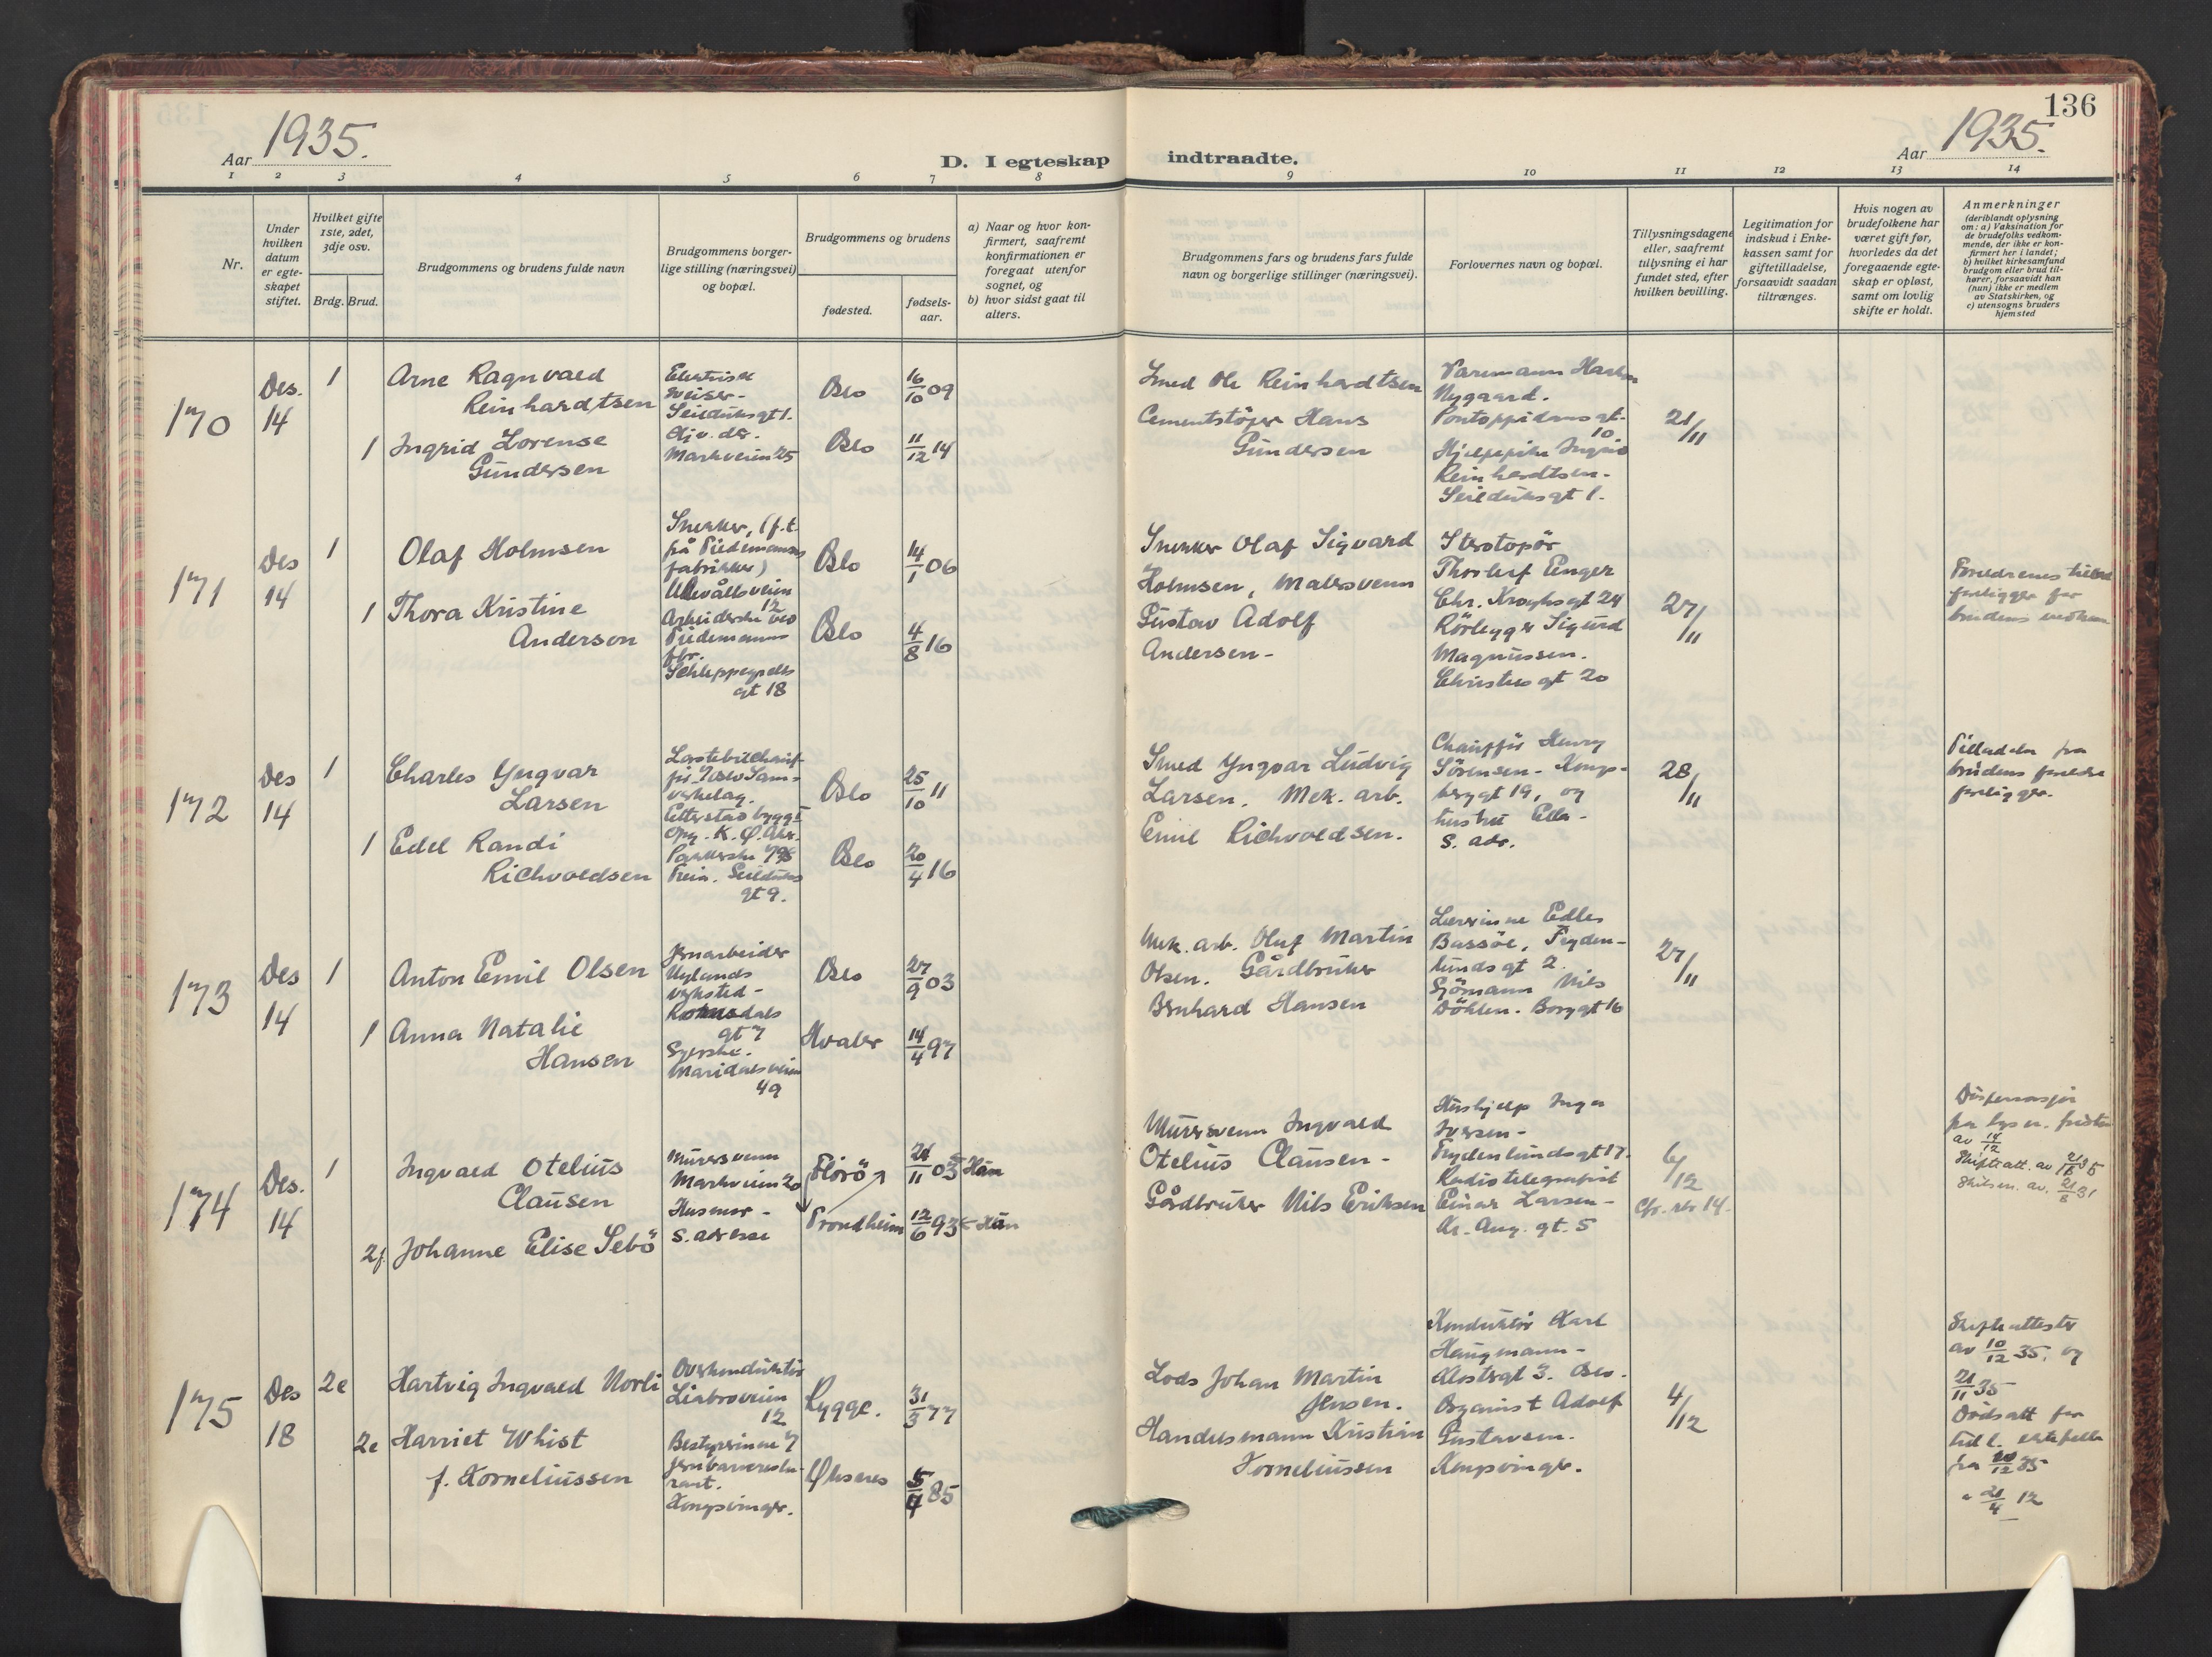 136
Aar 1935.
D. I egteskap indtraadte.
Aar 1935.
1 2 3 4 5 6 7 8 9 10 11 12 13 14
Nr.
Under
hvilken
datum
er egte-
skapet
stiftet.
Hvilket gifte
1ste, 2det,
3dje osv.
Brdg. Brud.
Brudgommens og brudens fulde navn
Brudgommens borger-
lige stilling (næringsvei)
og bopæl.
Brudgommens og brudens
fødested.
fødsels-
aar.
a) Naar og hvor kon-
firmert, saafremt
konfirmationen er
foregaat utenfor
sognet, og
b) hvor sidst gaat til
alters.
Brudgommens fars og brudens fars fulde
navn og borgerlige stillinger (næringsvei).
Forlovernes navn og bopæl.
Tillysningsdagene
eller, saafremt
tillysning ei har
fundet sted, efter
hvilken bevilling.
Legitimation for
indskud i Enke-
kassen samt for
giftetilladelse,
forsaavidt saadan
tiltrænges.
Hvis nogen av
brudefolkene har
været gift før,
hvorledes da det
foregaaende egte-
skap er opløst,
samt om lovlig
skifte er holdt.
Anmerkninger
(deriblandt oplysning
om: a) Vaksination for
de brudefolks vedkom-
mende, der ikke er kon-
firmert her i landet;
b) hvilket kirkesamfund
brudgom eller brud til-
hører, forsaavidt han
(hun) ikke er medlem
av Statskirken, og
c) utensogns bruders
hjemsted
170
Des.
14
1
Arne Ragnvald
Reinhardtsen
Seilduksgt 1.
Oslo
16/10 09
1
Ingrid Lorense
Gundersen
Markveien 25
Oslo
11/12 14
Smed Ole Reinhardtsen
Cementstöper Hans
Gundersen
Nygaard.
Pontoppidansgt.
10.
Reinhardtsen.
Seilduksgt 1.
21/11
171
Des
14
1
Olaf Holmsen
Snekker, (f.t.
på Tiedemanns
fabrikker)
Ullevålsveien
12
Oslo
14/1 06
1
Thora Kristine
Anderson
Arbeiderske ved
Tiedemanns
fbr.
Schleppegrells
gt 18
Oslo
4/8 16
Snekker Olaf Sigvard
Holmsen, Malersvenn
Gustav Adolf
Andersen-
Thorleif Enger
Chr. Kroghsgt 24
Rörlegger Sigurd
Magnussen.
gt 20
27/11
Foreldrenes
foreligger for
brudens
172
Des
14
1
Charles Yngvar
Larsen
Oslo
25/10 11
1
Edel Randi
Richvoldsen
gt 9.
Oslo
20/4 16
Smed Yngvar Ludvig
Larsen. Mek. arb.
Emil Richvoldsen.
Chauffør Henry
Sörensen-
gt 19, og
hustru Ella-
s. adr.
28/11
Tilladelse fra
brudens foreldre
foreligger.
173
Des
14
1
Anton Emil Olsen
Jernarbeider
Nylands
verksted-
Romsdals
gt 7
Oslo
27/9 03
1
Anna Natalie
Hansen
Syerske.
Maridalsveien
49
Hvaler
14/4 97
Mek. arb. Oluf Martin
Olsen. Gårdbruker
Bernhard Hansen
Lærerinne Edle
Bassöe, Fryden-
lundsgt 2.
Sjömann Nils
Döhlen. Borggt 16
27/11
174
Des.
14
1
Ingvald Otelius
Clausen
Murersvenn
Markveien 20
Florö
21/11 03
Hun
2f.
Johanne Elise Sebö
Husmor-
s. adresse
Trondheim
12/6 93
Han
Murersvenn Ingvald
Otelius Clausen-
Gårdbruker Nils Eriksen
Hushjelp Inga
Iversen-
Frydenlundsgt 17.
Radiotelegrafist
Einar Larsen-
Kr. Aug. gt. 5
6/12
Cfr. rbr 14.
Dispensasjon
av 14/12
175
Des
18
2e
Hartvig Ingvald Norli
Overkonduktör
Ljabroveien
12
Rygge.
31/3 77
2e
Harriet Whist
f. Korneliussen
Bestyrerinne v/
Kongsvinger.
5/7 85
Lods Johan Martin
Jensen.
Handelsmann Kristian
Korneliussen
Konduktör Karl
Haugmann-
Klostergt 3. Oslo.
Organist Adolf
Gustavsen.
Kongsvinger.
4/12
Skifteattester
av 10/12 35, og
21/11 35
Dödsatt fra
tidl. ektefelle
21/4 12